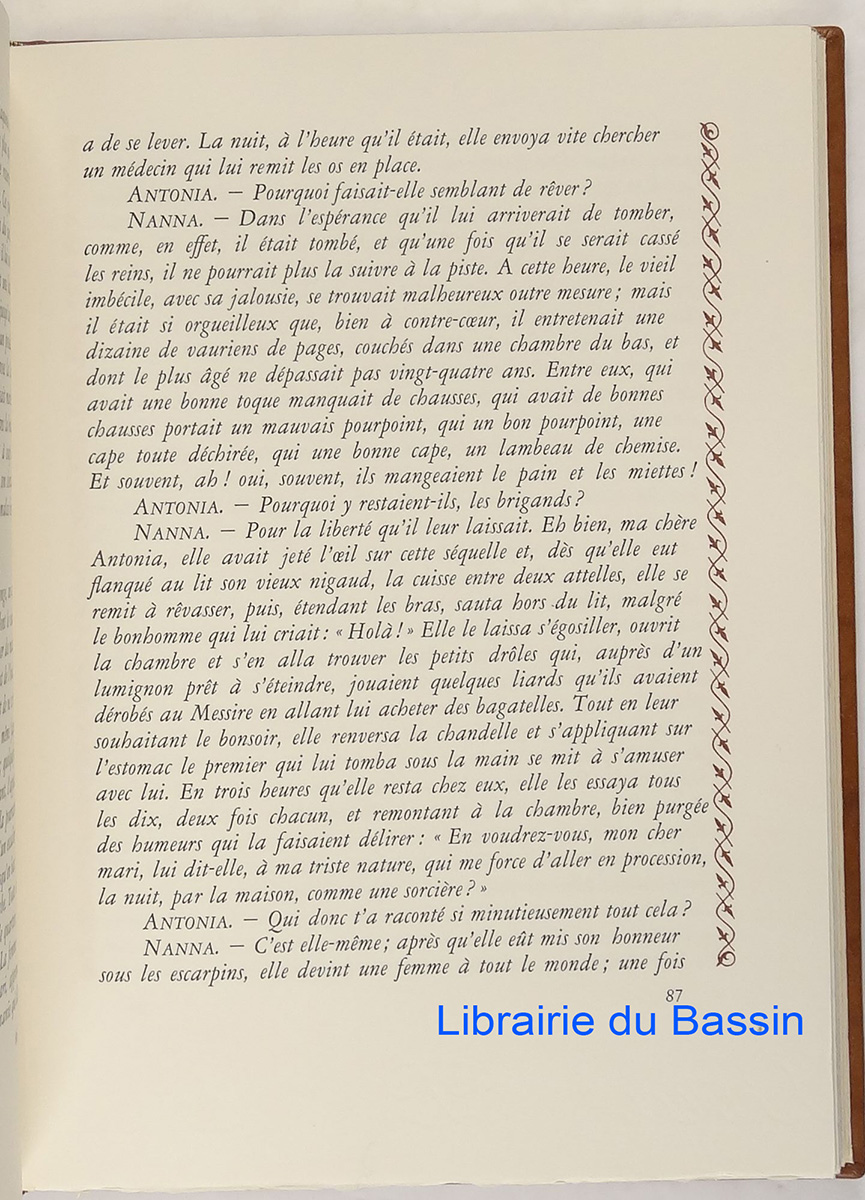 a de se lever. La nuit, à l'heure qu'il était, elle envoya vite chercher
un médecin qui lui remit les os en place.
ANTONIA. — Pourquoi faisait-elle semblant de rêver ?
NANNA. — Dans l'espérance qu'il lui arriverait de tomber,
comme, en effet, il était tombé, et qu'une fois qu'il se serait cassé
les reins, il ne pourrait plus la suivre à la piste. A cette heure, le vieil
imbécile, avec sa jalousie, se trouvait malheureux outre mesure ; mais
il était si orgueilleux que, bien à contre-cœur, il entretenait une
dizaine de vauriens de pages, couchés dans une chambre du bas, et
dont le plus âgé ne dépassait pas vingt-quatre ans. Entre eux, qui
avait une bonne toque manquait de chausses, qui avait de bonnes
chausses portait un mauvais pourpoint, qui un bon pourpoint, une
cape toute déchirée, qui une bonne cape, un lambeau de chemise.
Et souvent, ah ! oui, souvent, ils mangeaient le pain et les miettes !
ANTONIA. — Pourquoi y restaient-ils, les brigands ?
NANNA. — Pour la liberté qu'il leur laissait. Eh bien, ma chère
Antonia, elle avait jeté l'œil sur cette séquelle et, dès qu'elle eut
flanqué au lit son vieux nigaud, la cuisse entre deux attelles, elle se
remit à rêvasser, puis, étendant les bras, sauta hors du lit, malgré
le bonhomme qui lui criait : « Holà ! » Elle le laissa s'égosiller, ouvrit
la chambre et s'en alla trouver les petits drôles qui, auprès d'un
lumignon prêt à s'éteindre, jouaient quelques liards qu'ils avaient
dérobés au Messire en allant lui acheter des bagatelles. Tout en leur
souhaitant le bonsoir, elle renversa la chandelle et s'appliquant sur
l'estomac le premier qui lui tomba sous la main se mit à s'amuser
avec lui. En trois heures qu'elle resta chez eux, elle les essaya tous
les dix, deux fois chacun, et remontant à la chambre, bien purgée
des humeurs qui la faisaient délirer : « En voudrez-vous, mon cher
mari, lui dit-elle, à ma triste nature, qui me force d'aller en procession,
la nuit, par la maison, comme une sorcière ? »
ANTONIA. — Qui donc t'a raconté si minutieusement tout cela ?
NANNA. — C'est elle-même ; après qu'elle eût mis son honneur
sous les escarpins, elle devint une femme à tout le monde ; une fois
87
Librairie du Bassin